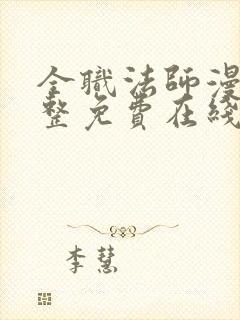 全職法師漫
整免費在綫
李慧